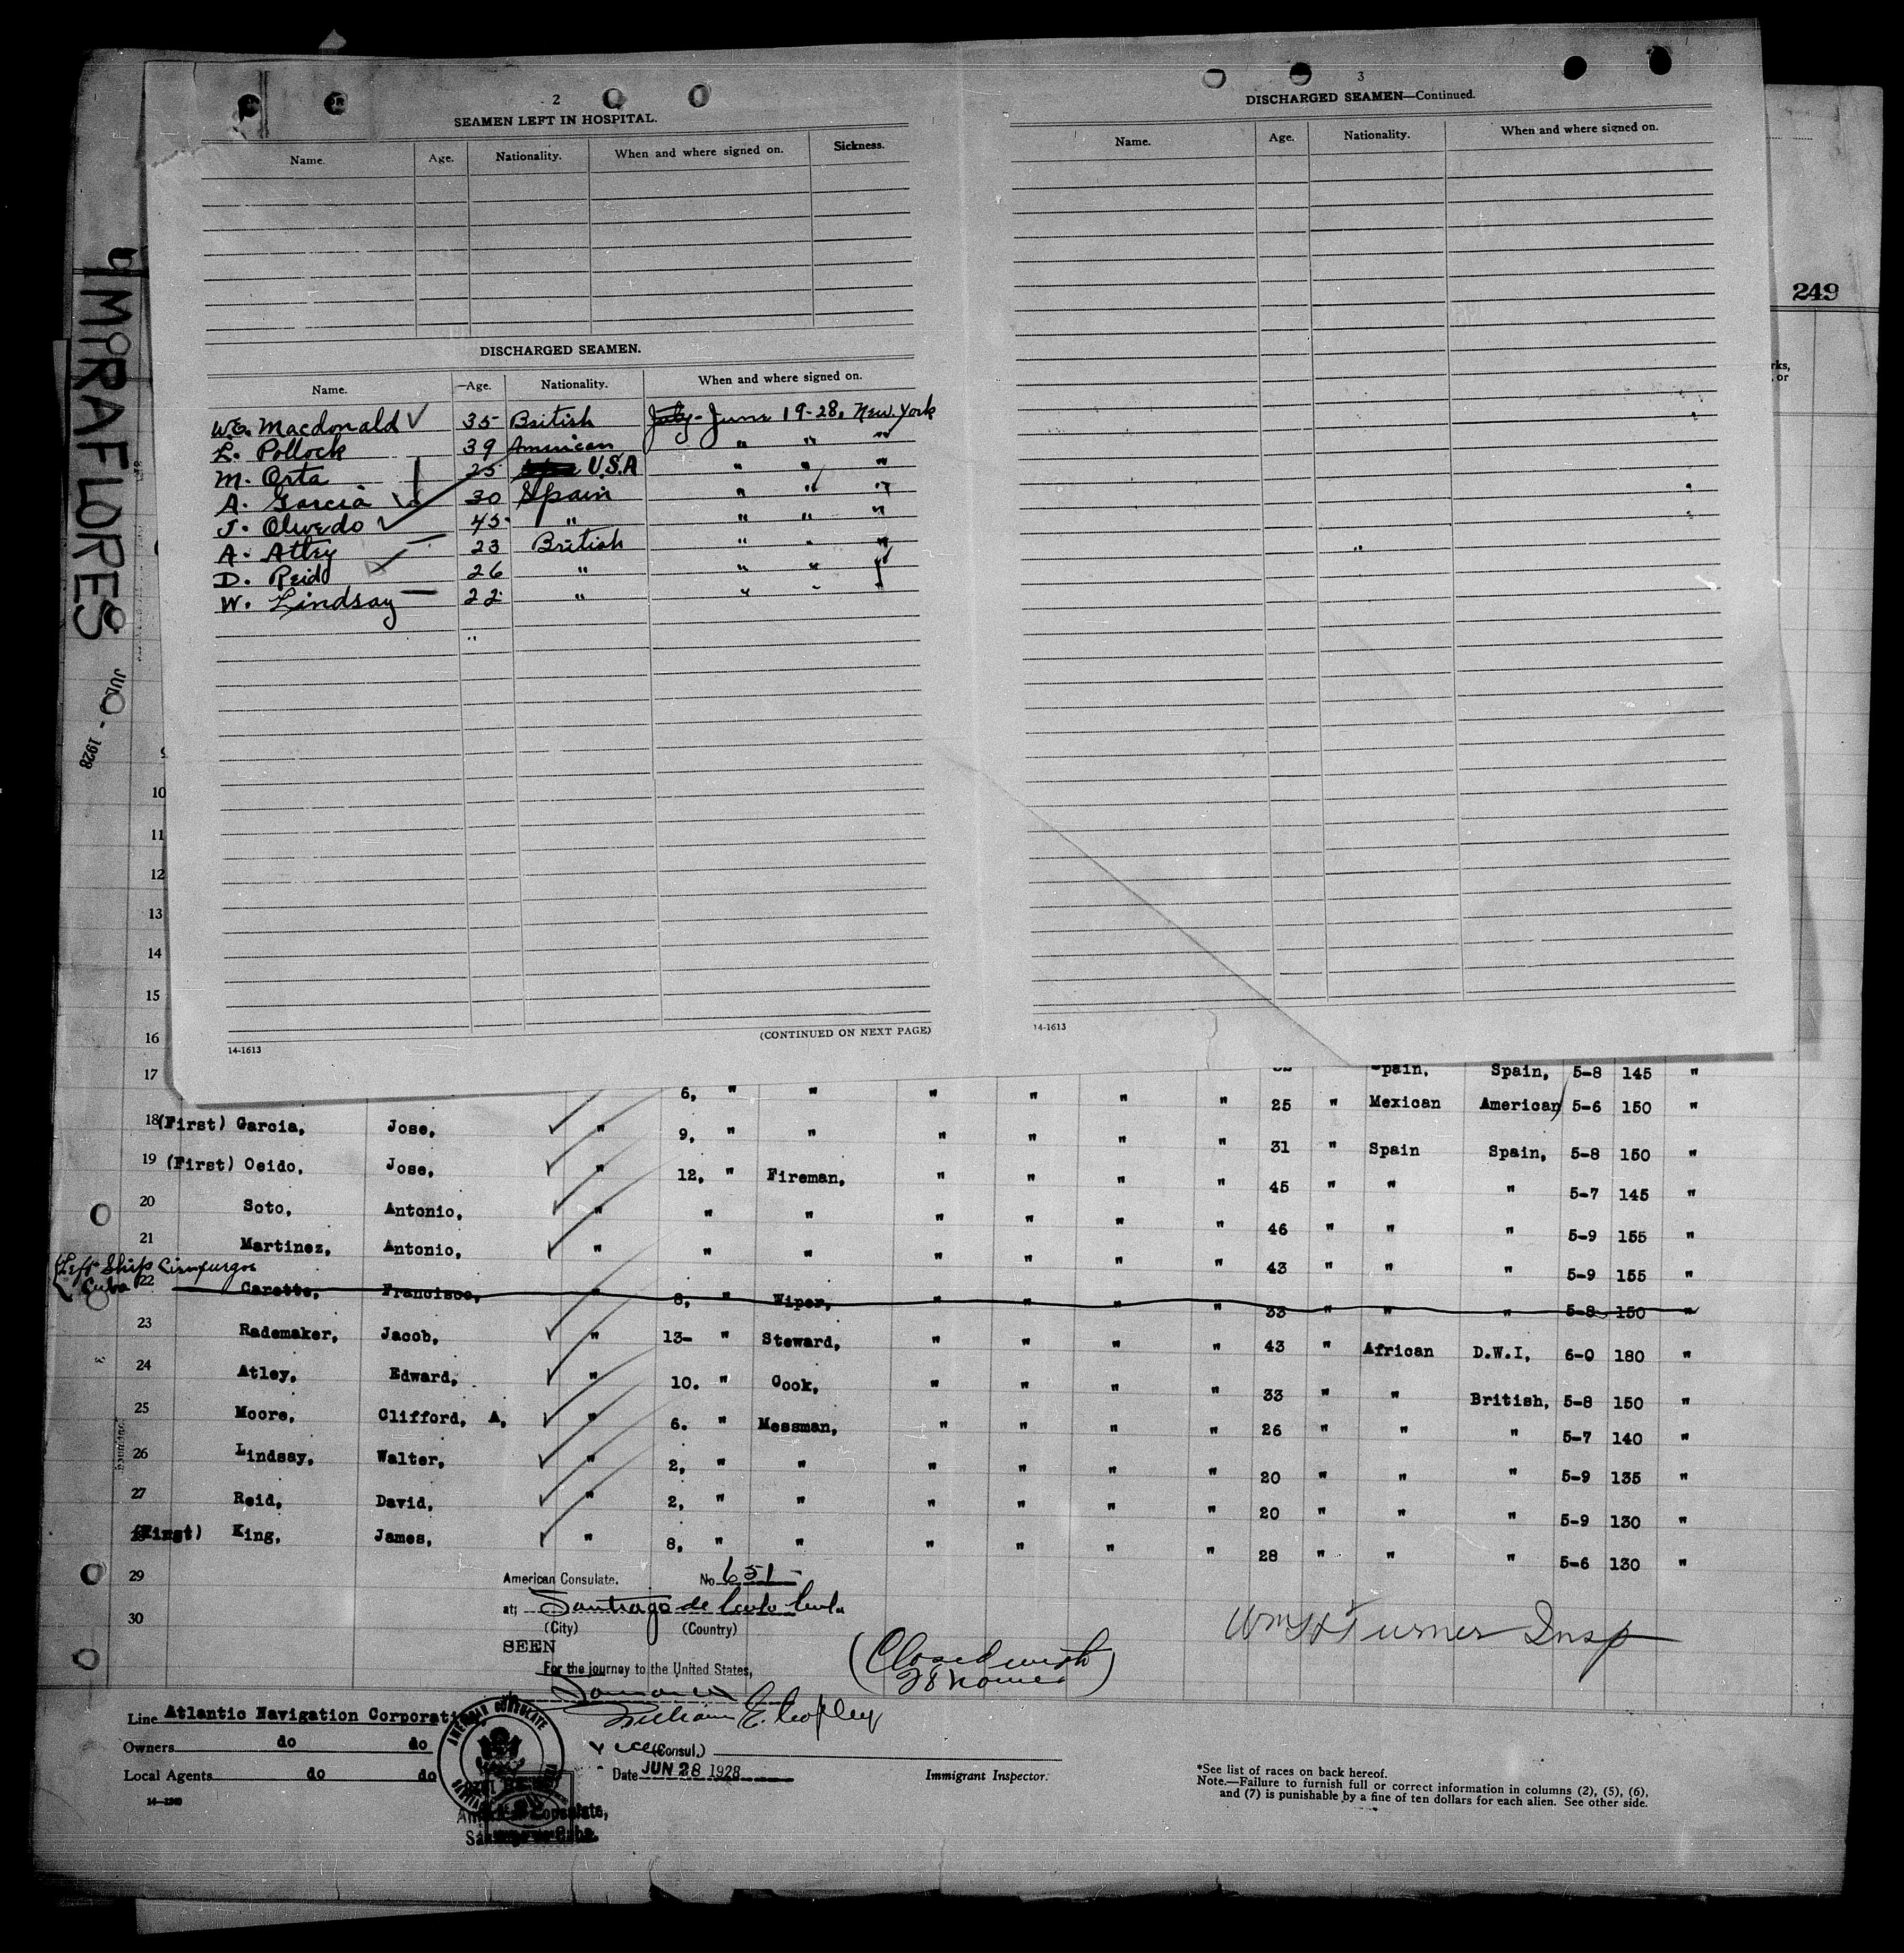 2
SEAMEN LEFT IN HOSPITAL.
Name. Age. Nationality. When and where signed on. Sickness.
DISCHARGED SEAMEN.
Name. Age. Nationality. When and where signed on.
W.E. Macdonald 35 British June 19-28, New York
L. Pollock 39 American " " "
M. Orta 25 U.S.A " " "
A. Garcia 30 Spain " " "
J. Olvedo 45 " " " "
A. Atley 23 British " " "
D. Reid 26 " " " "
W. Lindsay 22 " " "
(CONTINUED ON NEXT PAGE)
14-1613
3
DISCHARGED SEAMEN—Continued.
Name. Age. Nationality. When and where signed on.
14-1613
249
rks,
, or
MIRAFLORES
1928
10
11
12
13
14
15
16
17 pain, Spain, 5-8 145 "
6, " " " " " " 25 " Mexican American 5-6 150 "
18 (First) Garcia, Jose, " 9, " " " " " " 31 " Spain Spain, 5-8 150 "
19 (First) Oeido, Jose, " 12, " Fireman, " " " " 45 " " " 5-7 145 "
20 Soto, Antonio, " " " " " " " 46 " " " 5-9 155 "
21 Martinez, Antonio, " " " " " " " 43 " " " 5-9 155 "
(Left Ship
Cuba
22 Francisco, " 8, " Wiper, " " " " 33 " " " 5-8 150 "
23 Rademaker, Jacob, " 13- " Steward, " " " " 43 " African D.W.I, 6-0 180 "
24 Atley, Edward, " 10. " Cook, " " " " 33 " " British, 5-8 150 "
25 Moore, Clifford, A, " 6. " Messman, " " " " 26 " " " 5-7 140 "
26 Lindsay, Walter, " 2, " " " " " " 20 " " " 5-9 135 "
27 Reid, David, " 2, " " " " " " 20 " " " 5-9 130 "
(First) King, James, " 8, " " " " " " 28 " " " 5-6 130 "
29
30
American Consulate. No 651
at; Santiago de Cuba Cuba
(City) (Country)
SEEN
For the journey to the United States,
William E. Copley
Vice (Consul.)
Date JUN 28 1928
(Closed with
28 names)
Wm H Turner Insp
Immigrant Inspector.
Line Atlantic Navigation Corporation,
Owners do do
Local Agents do do
AMERICAN CONSULATE
American Consulate,
*See list of races on back hereof.
Note.—Failure to furnish full or correct information in columns (2), (5), (6),
and (7) is punishable by a fine of ten dollars for each alien. See other side.